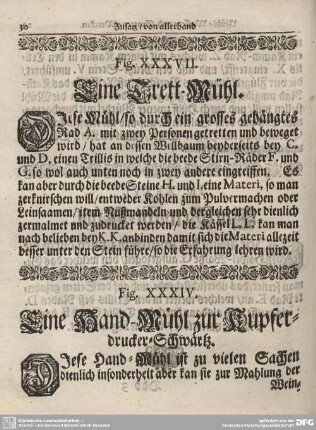 30 Zusatz / von allerhand
Fig. XXXVII.
Eine Trett-Mühl.
Diese Mühl / so durch ein grosses gehängtes
Rad A. mit zwey Personen getretten und beweget
wird / hat an dissen Wellbaum beyderseits bey C.
und D. einen Trillis in welche die beede Stirn-Räder F. und
G. so wol auch unten noch in zwey andere eingreiffen. Es
kan aber durch die beede Steine H. und I. eine Materi, so man
zerknirschen will / entweder Kohlen zum Pulvermachen oder
Leinsaamen / item Nußmandeln und dergleichen sehr dienlich
zermalmet und zudrucket werden / die Kässel L.L. kan man
nach belieben bey K.K. anbinden damit sich die Materi allezeit
besser unter den Stein führe / so die Erfahrung lehren wird.
Fig. XXXIV
Eine Hand-Mühl zur Kupfer-
drucker-Schwärtz.
Diese Hand-Mühl ist zu vielen Sachen
dienlich insonderheit aber kan sie zur Mahlung der
Wein-